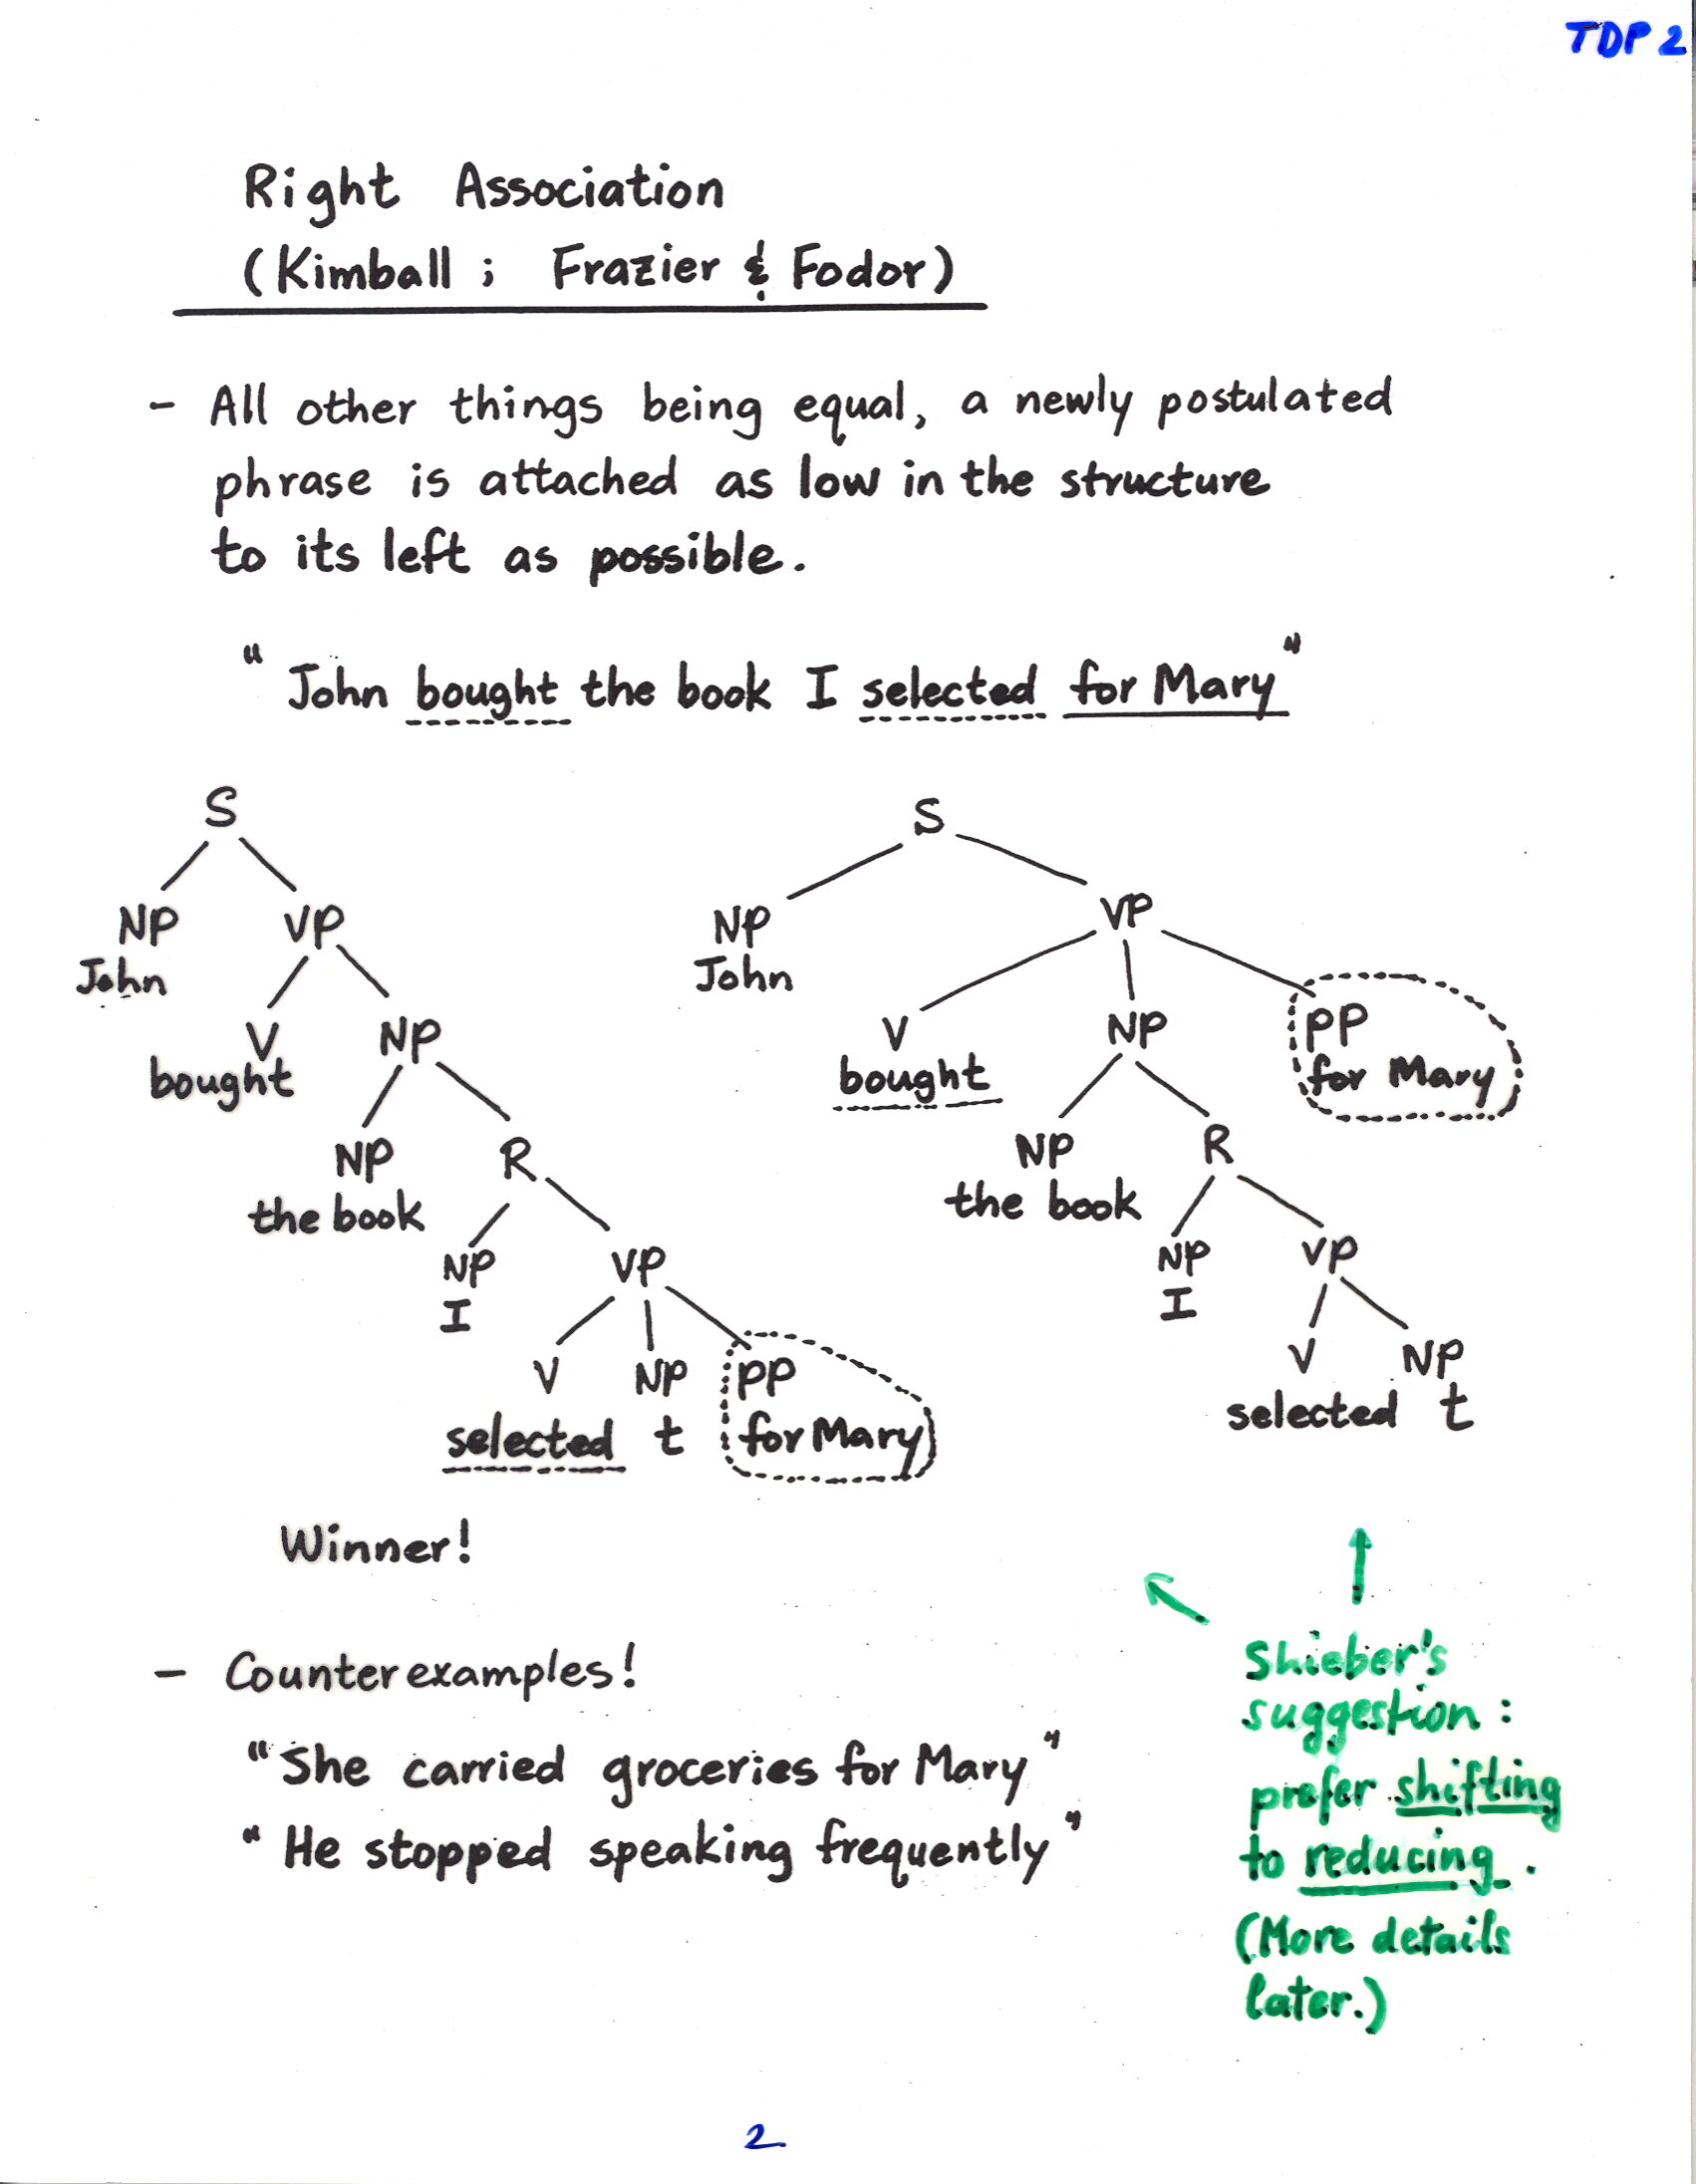 TDP 2
Right Association
(Kimball ; Frazier & Fodor)
- All other things being equal, a newly postulated
phrase is attached as low in the structure
to its left as possible.
"John bought the book I selected for Mary"
S
NP VP
John
V NP
bought
NP R
the book
NP VP
I
V NP PP
selected t for Mary
Winner!
S
NP VP
John
V NP PP
bought for Mary
NP R
the book
NP VP
I
V NP
selected t
- Counterexamples!
"She carried groceries for Mary"
"He stopped speaking frequently"
Shieber's
suggestion:
prefer shifting
to reducing.
(More details
later.)
2